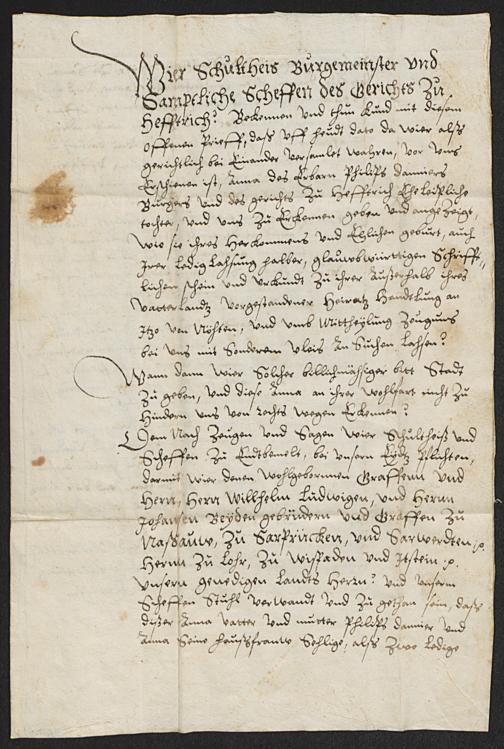 Wier Schultheis Burgemeinster vnd
Samptliche Scheffen des Gerichts Zu
Hefftrich? Bekennen vnd thun kund mit diesem
offenen Brieff, daß vff heudt dato da wier alß
gerichtlich bei Einander versamlet wahren, vor vns
Erschienen ist, Anna des Erbarn Philips damiers
Burgers vnd des gerichts Zu Hefftrich Eheleibliche
tochter, vnd vns Zu Erkennen geben vnd angezeigt,
wie sie ihres Herkommens vnd Ehlichen geburt, auch
Irer ledig Lassung halber, glaubwürttigen Schrifft-
lichen schein vnd vrkundt Zu ihrer Außerhalb ihres
vatterLandtz vorgestandener Heiratz Handtlung an
Itzo von Nöhten, vnd vmb Mittheÿlung Zeugnus
bei vns mit Sonderem vleis An Suchen Lassen?
Wann dann wier Solcher billichmässiger bitt Stadt
Zu geben, vnd diese Anna an ihrer wohlfart nicht Zu
Hindern vns von rechts wegen Erkennen?
Dem Nach Zeugen vnd Sagen wier Schultheiß vnd
Scheffen Zu Endtbemelt, bei vnsern Eÿdtz Pflichten,
darmit wier denen wohlgebornnen Graffenn vnd
Herrn, Herrn Willhelm Ludwigen, vnd Herrn
Johansen Beÿden gebrüdern vnd Graffen Zu
Naßauw, Zu Sarprücken, vnd Sarwerdten p.
Herrn Zu Lohr, Zu Wißbaden vnd Itstein p.
vnsern genedigen Landts Herrn? vnd vnserm
Scheffen Stuhl verwandt vnd Zu gethan sein, daß
dißer Anna vatter vnd mutter Philips damier vnd
Anna Seine haußfrauw Sehlige, alß Zwo Ledige